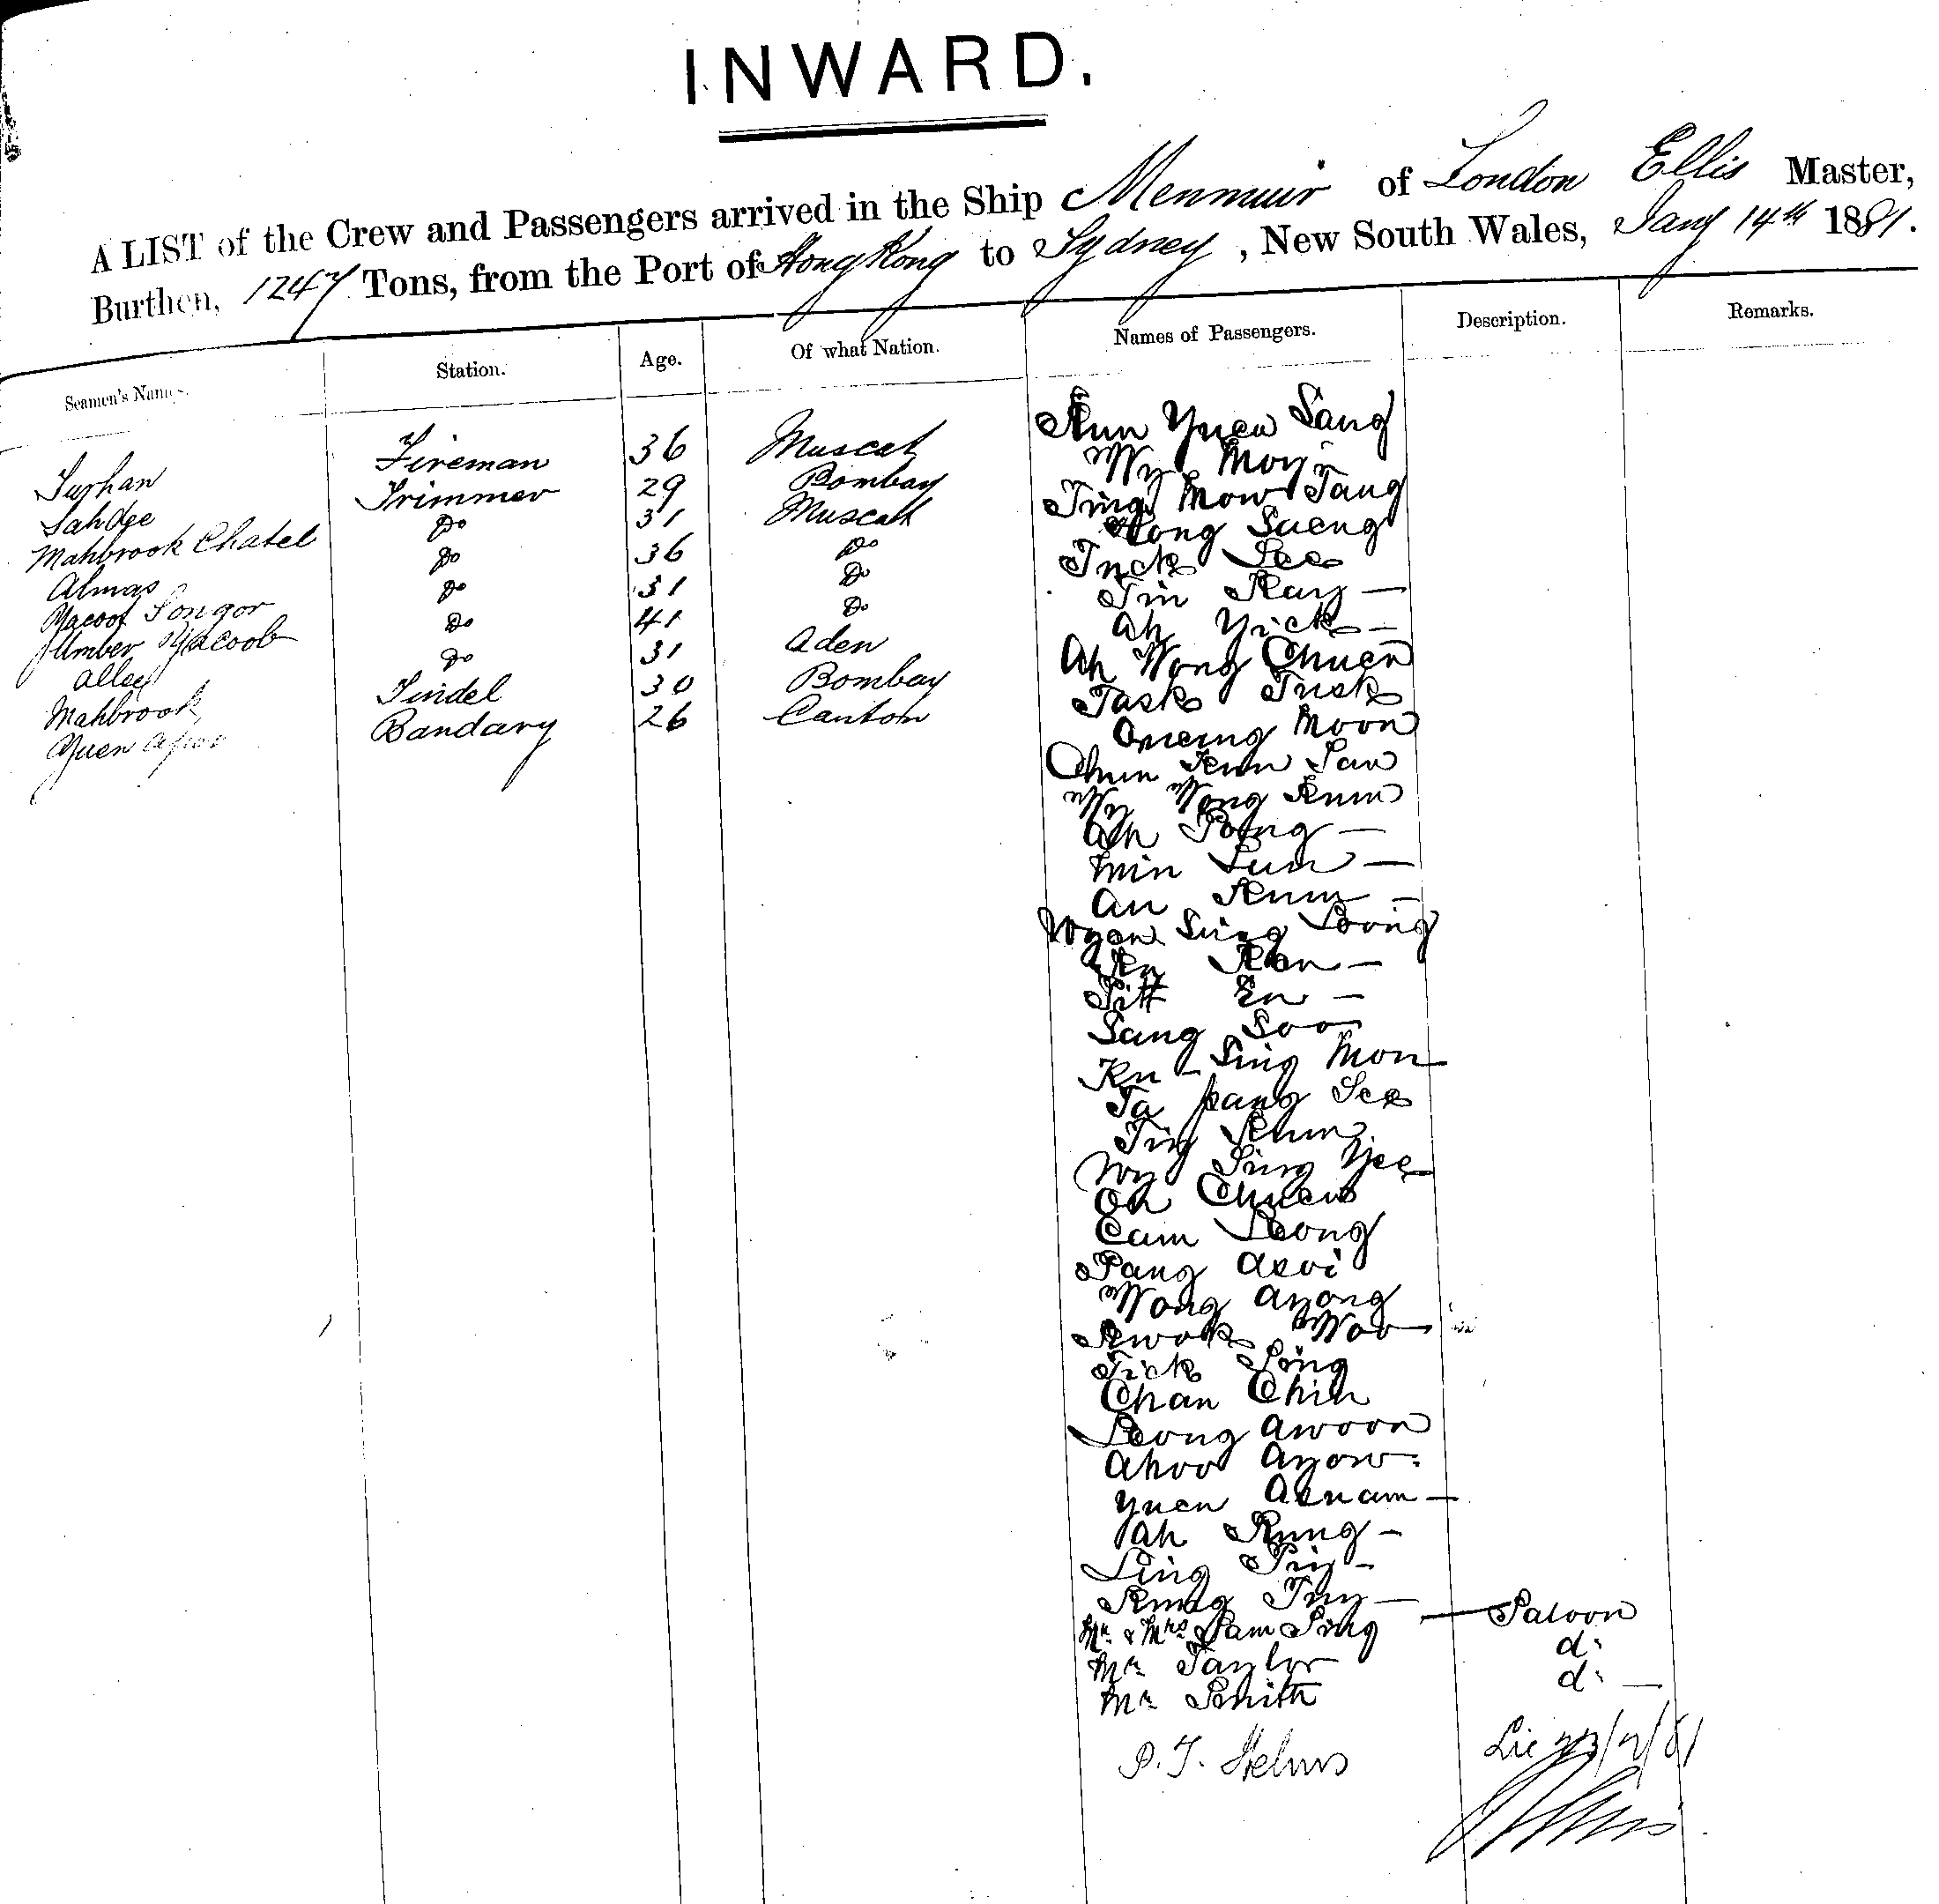 INWARD.
A LIST of the Crew and Passengers arrived in the Ship Menmuir of London Ellis Master,
Burthen, 1247 Tons, from the Port of Hong Kong to Sydney, New South Wales, Jany 14th 1881.
Seamen's Names. Station. Age. Of what Nation. Names of Passengers. Description. Remarks.
Surhan Fireman 36 Muscat
Sahdge Trimmer 29 Bombay
Mahbrook Chatel Do 31 Muscat
Almas Do 36 Do
Yacoof Songor Do 31 Do
Umber Yacoob Do 41 Do
Alley Do 31 Aden
Mahbrook Tindel 30 Bombay
Yuen Bandary 26 Canton
Kun Yuen Sang
Wy Moy
Ting Mow Tang
Hong Sueng
Tuck See
Tin Kay —
Ah Yick —
Ah Wong Chuen
Task Tusk
Moon
Chun Kun San
Wy Wong Kum
Ah Poing —
Min Sum —
Au Kum —
Sing Loong
Kan —
Pitt En —
Sang Soo
Ku - Sing Mon
Ta pang See
Tin Khun
Wy Sing Yee
Oh Chuen
Cam Leong
Pang Akoi
Wong Ayong
Kwok Woo
Tick Song
Chan Chin
Leong Awoon
Ahoo Ayow
Yuen Asnam —
Ah Kung —
Ling Piy —
Kung Tuy —
Mr & Mrs Sam Sing — Saloon
Mr Taylor do
Mr Smith do —
P. T. Helms